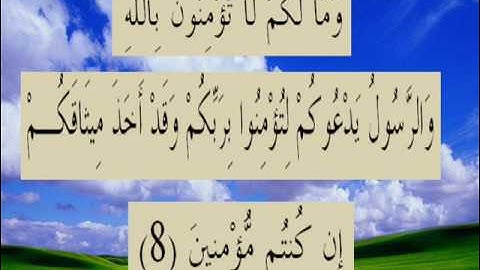 وَمَا لَكُمْ لَا تُؤْمِنُونَ بِاللَّهِ
وَالرَّسُولُ يَدْعُوكُمْ لِتُؤْمِنُوا بِرَبِّكُمْ وَقَدْ أَخَذَ مِيثَاقَكُـــمْ
إِن كُنتُم مُّؤْمِنِينَ (8)